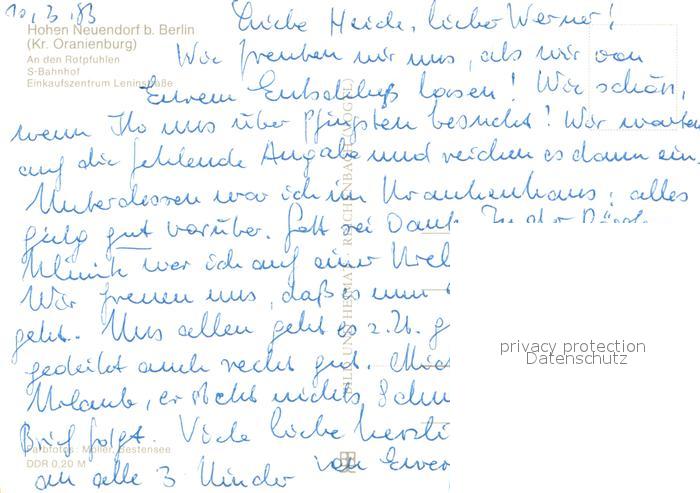 10.3.83
Hohen Neuendorf b. Berlin
(Kr. Oranienburg)
An den Rotpfuhlen
S-Bahnhof
Einkaufszentrum Leninstraße
Liebe Heide, lieber Werner!
Wie freuten wir uns, als wir von
Eurem Entschluß lasen! Wie schön,
wenn Ihr uns über Pfingsten besucht! Wir warten
auf die fehlende Angabe und reichen es dann ein.
Unterdessen war ich im Krankenhaus; alles
ging gut vorüber. Gott sei Dank. In der
Klinik war ich auf einer
Wir freuen uns, daß es nun
geht. Uns allen geht es z. Zt. g
gedeiht auch recht gut.
Urlaub, er sieht nichts
Brief folgt. Viele liebe herzli
an alle 3 Kinder von Euer
REICHENBACH (VOGTL)
Farbfotos: Müller, Bestensee
DDR 0,20 M
privacy protection
Datenschutz